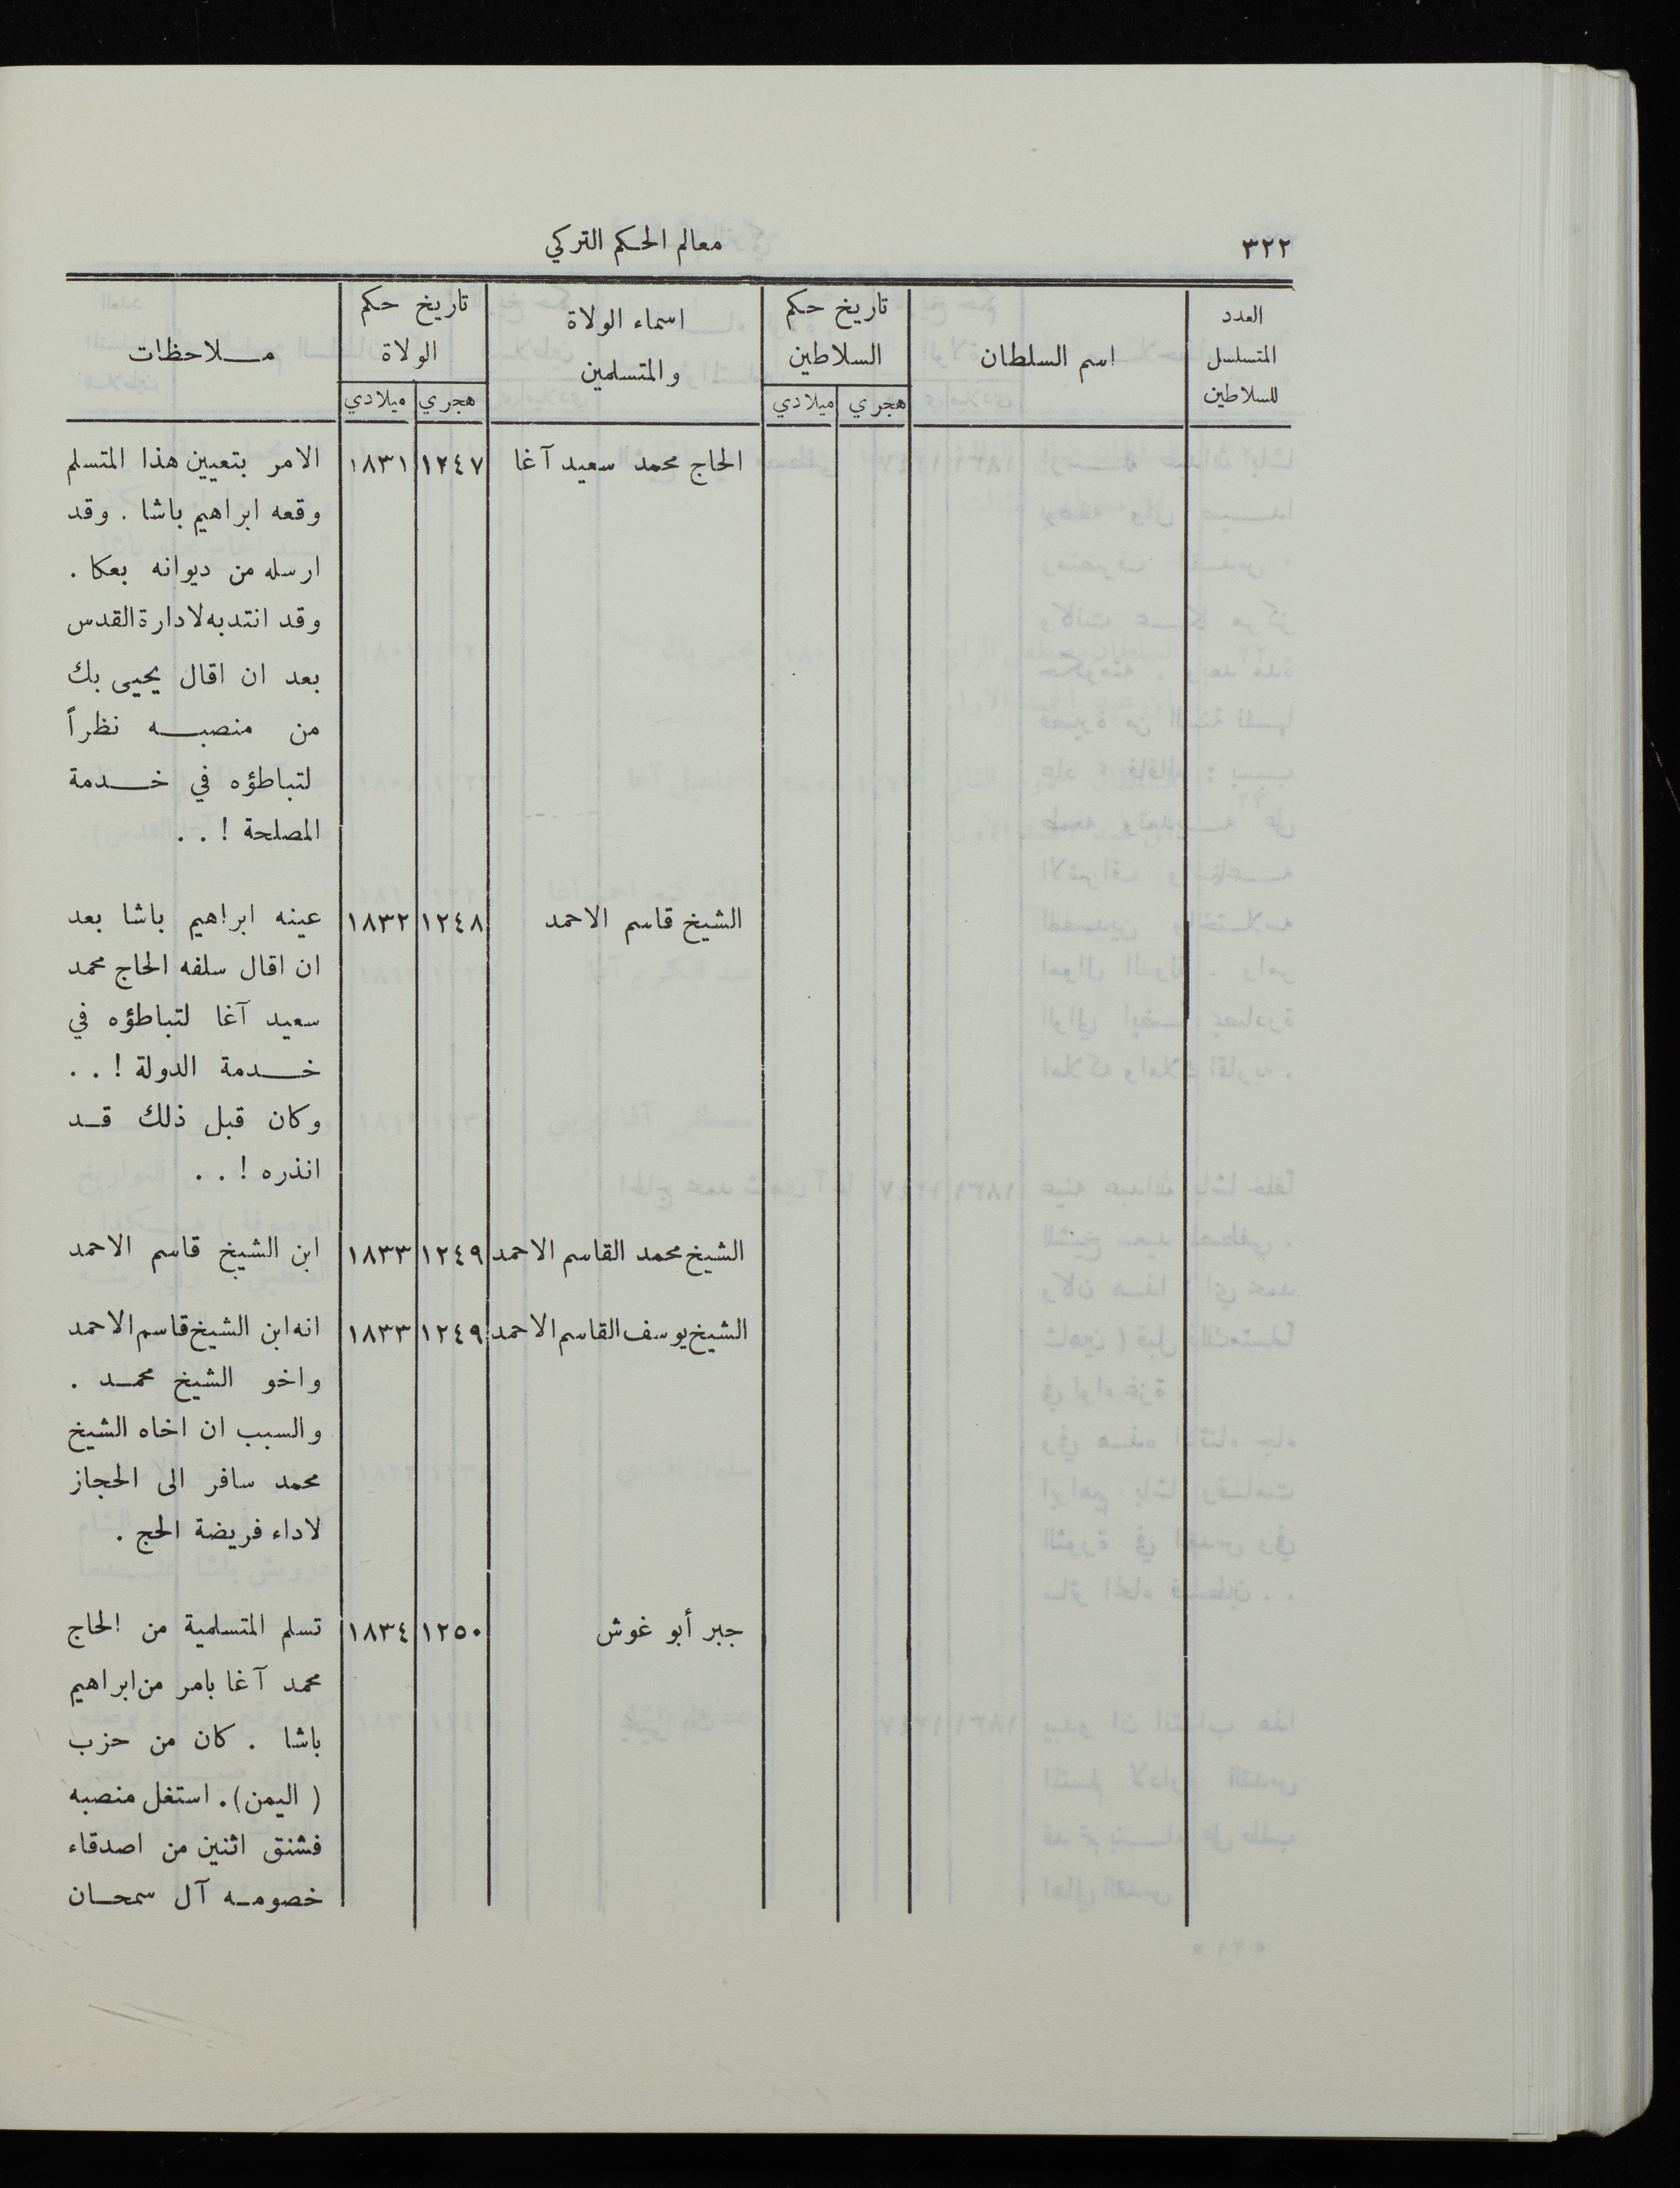 ٣٢٢
معالم الحكم التركي
العدد
المتسلسل
للسلاطين
اسم السلطان
تاريخ حكم
السلاطين
هجري ميلادي
اسماء الولاة
والمتسلمين
تاريخ حكم
الولاة
هجري ميلادي
ملاحظات
الحاج محمد سعيد آغا ١٢٤٧ ١٨٣١ الامر بتعيين هذا المتسلم
وقعه ابراهيم باشا . وقد
ارسله من ديوانه بعكا .
وقد انتدبه لادارة القدس
بعد ان اقال يحيى بك
من منصبه نظراً
لتباطؤه في خدمة
المصلحة ! . .
الشيخ قاسم الاحمد ١٢٤٨ ١٨٣٢ عينه ابراهيم باشا بعد
ان اقال سلفه الحاج محمد
سعيد آغا لتباطؤه في
خدمة الدولة ! . .
وكان قبل ذلك قد
انذره ! . .
الشيخ محمد القاسم الاحمد ١٢٤٩ ١٨٣٣ ابن الشيخ قاسم الاحمد
الشيخ يوسف القاسم الاحمد ١٢٤٩ ١٨٣٣ انه ابن الشيخ قاسم الاحمد
واخو الشيخ محمد .
والسبب ان اخاه الشيخ
محمد سافر الى الحجاز
لاداء فريضة الحج .
جبر أبو غوش ١٢٥٠ ١٨٣٤ تسلم المتسلمية من الحاج
محمد آغا بامر من ابراهيم
باشا . كان من حزب
( اليمن ) . استغل منصبه
فشنق اثنين من اصدقاء
خصومه آل سمحان